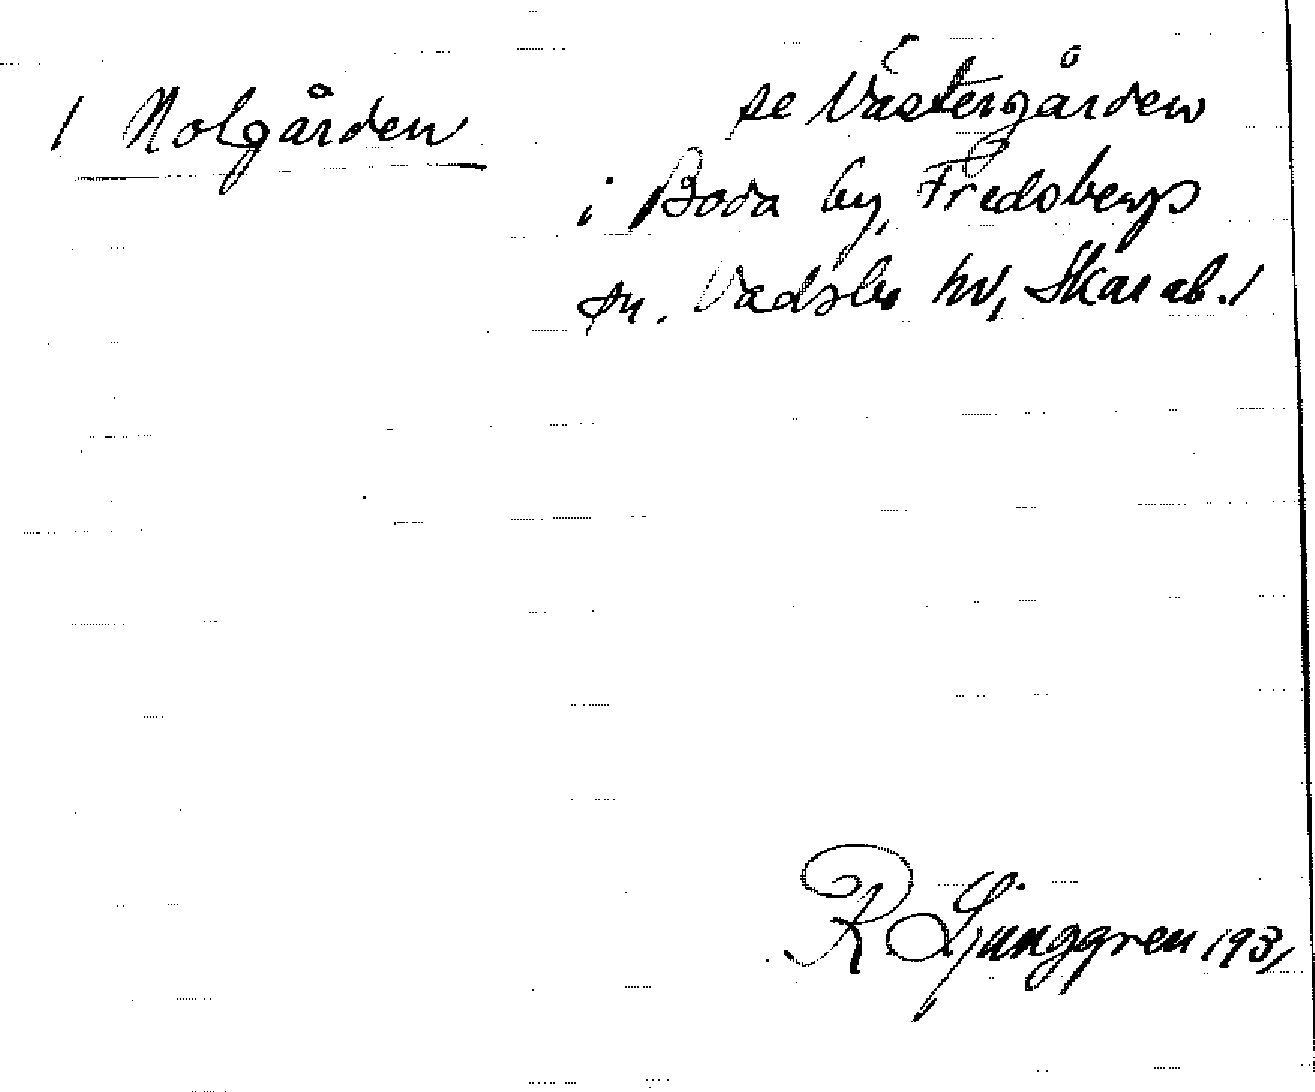 / Nolgården
se Västergården
i Boda by, Fredsbergs
sn. Vadsbo hd, Skarab. /
R Ljunggren 1931